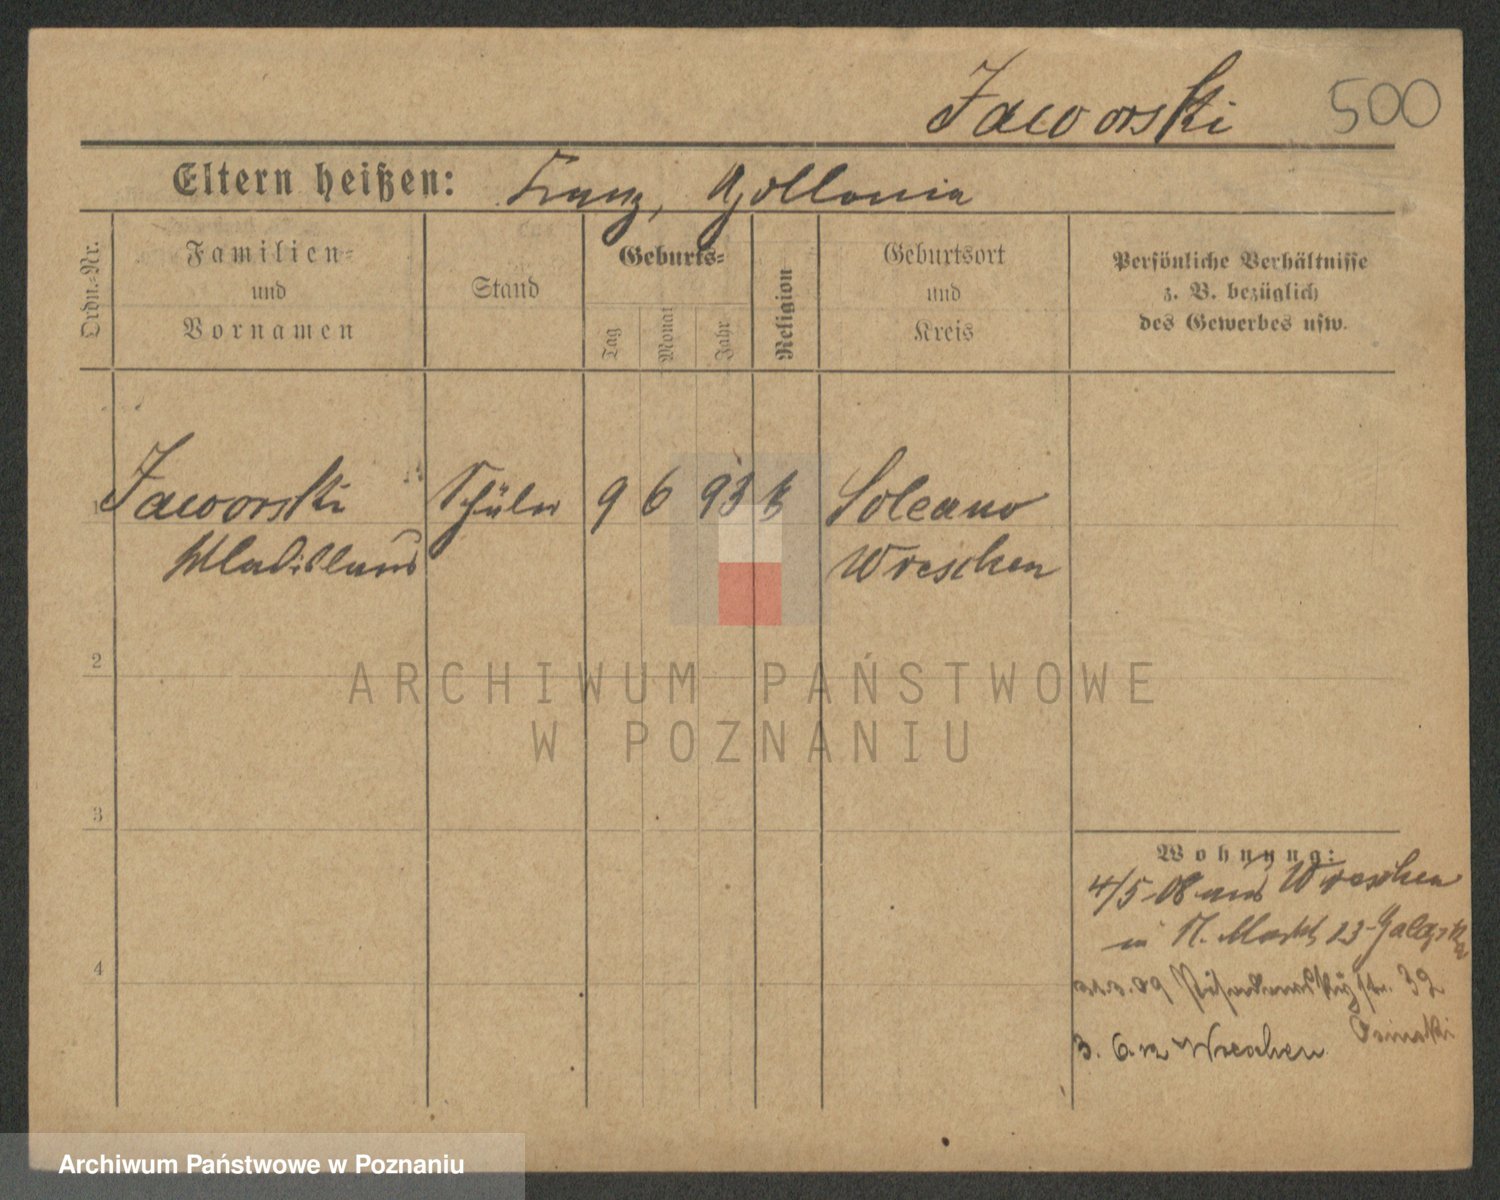 Jaworski 500
Eltern heißen: Franz, Apollonia
Ordn.-Nr.
Familien-
und
Vornamen
Stand
Geburts-
Tag
Monat
Jahr
Religion
Geburtsort
und
Kreis
Persönliche Verhältnisse
z. B. bezüglich
des Gewerbes usw.
1 Jaworski Schüler 9 6 93 k Soleano
Wladislaus Wreschen
2
3
4
Wohnung:
4/5 08 aus Wreschen
in A. Markt 23
09 str. 32
Osinski
3. 6. 12 Wreschen
ARCHIWUM PAŃSTWOWE
W POZNANIU
Archiwum Państwowe w Poznaniu